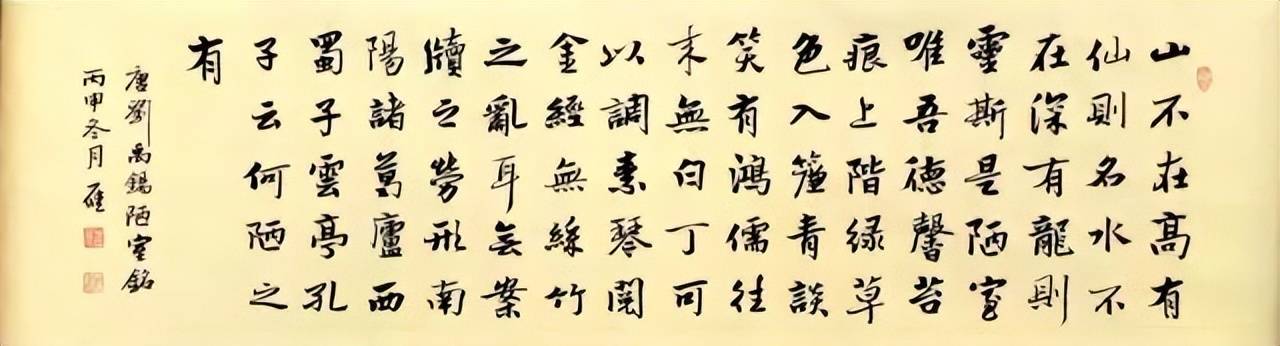 山不在高有
仙則名水不
在深有龍則
靈斯是陋室
唯吾德馨苔
痕上階緑草
色入簾青談
笑有鴻儒往
来無白丁可
以調素琴閲
金經無絲竹
之亂耳无案
牘之勞形南
陽諸葛廬西
蜀子雲亭孔
子云何陋之
有
唐劉禹錫陋室銘
丙申冬月